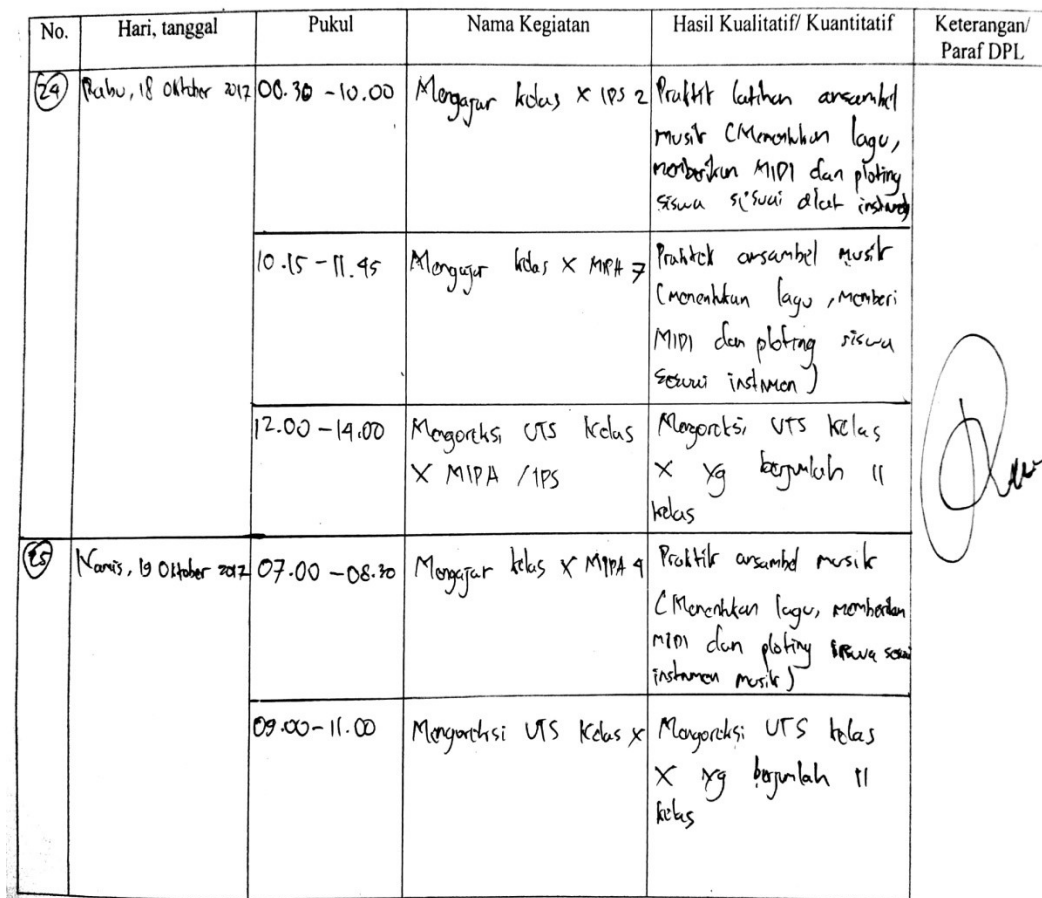 No. Hari, tanggal Pukul Nama Kegiatan Hasil Kualitatif/ Kuantitatif Keterangan/
Paraf DPL
24 Rabu, 18 Oktober 2017 08.30 - 10.00 Mengajar kelas X IPS 2 Praktik latihan ansambel
musik (Menentukan lagu,
memberikan MIDI dan ploting
siswa sesuai alat
10.15 - 11.45 Mengajar kelas X MIPA 7 Praktek ansambel musik
(menentukan lagu, memberi
MIDI dan ploting siswa
sesuai instrumen)
12.00 - 14.00 Mengoreksi UTS kelas Mengoreksi UTS kelas
X MIPA / IPS X yg berjumlah 11
kelas
25 Kamis, 19 Oktober 2017 07.00 - 08.30 Mengajar kelas X MIPA 4 Praktik ansambel musik
(Menentukan lagu, memberikan
MIDI dan ploting siswa sesuai
instrumen musik)
09.00 - 11.00 Mengoreksi UTS Kelas X Mengoreksi UTS kelas
X yg berjumlah 11
kelas